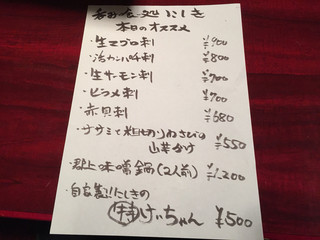 呑み食い処にしき
本日のオススメ
・生マグロ刺 ¥900
・活カンパチ刺 ¥800
・生サーモン刺 ¥700
・ヒラメ刺 ¥700
・赤貝刺 ¥680
・ナガイモと粗切りわさびの
山芋かけ ¥550
・郡上味噌鍋(2人前) ¥1,200
・自家製!!にしきの
特けいちゃん ¥500